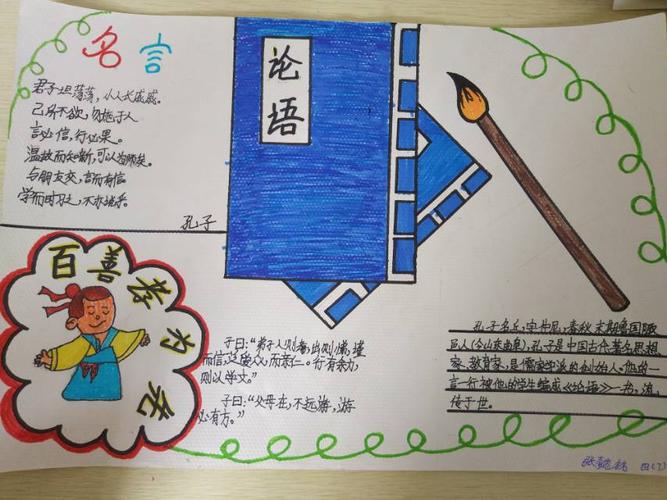 名言
君子坦荡荡，小人长戚戚。
己所不欲，勿施于人
言必信，行必果。
温故而知新，可以为师矣。
与朋友交，言而有信
学而时习之，不亦说乎。
孔子
论语
百善孝为先
子曰:“弟子入则孝，出则悌，谨
而信，泛爱众，而亲仁。行有余力，
则以学文。”
子曰:“父母在，不远游，游
必有方。”
孔子名丘，字仲尼，春秋末期鲁国陬
邑人(今山东曲阜)，孔子是中国古代著名思想
家、教育家，是儒家学派的创始人，他的一
言一行被他的学生编成《论语》一书，流
传于世。
张
四(7)